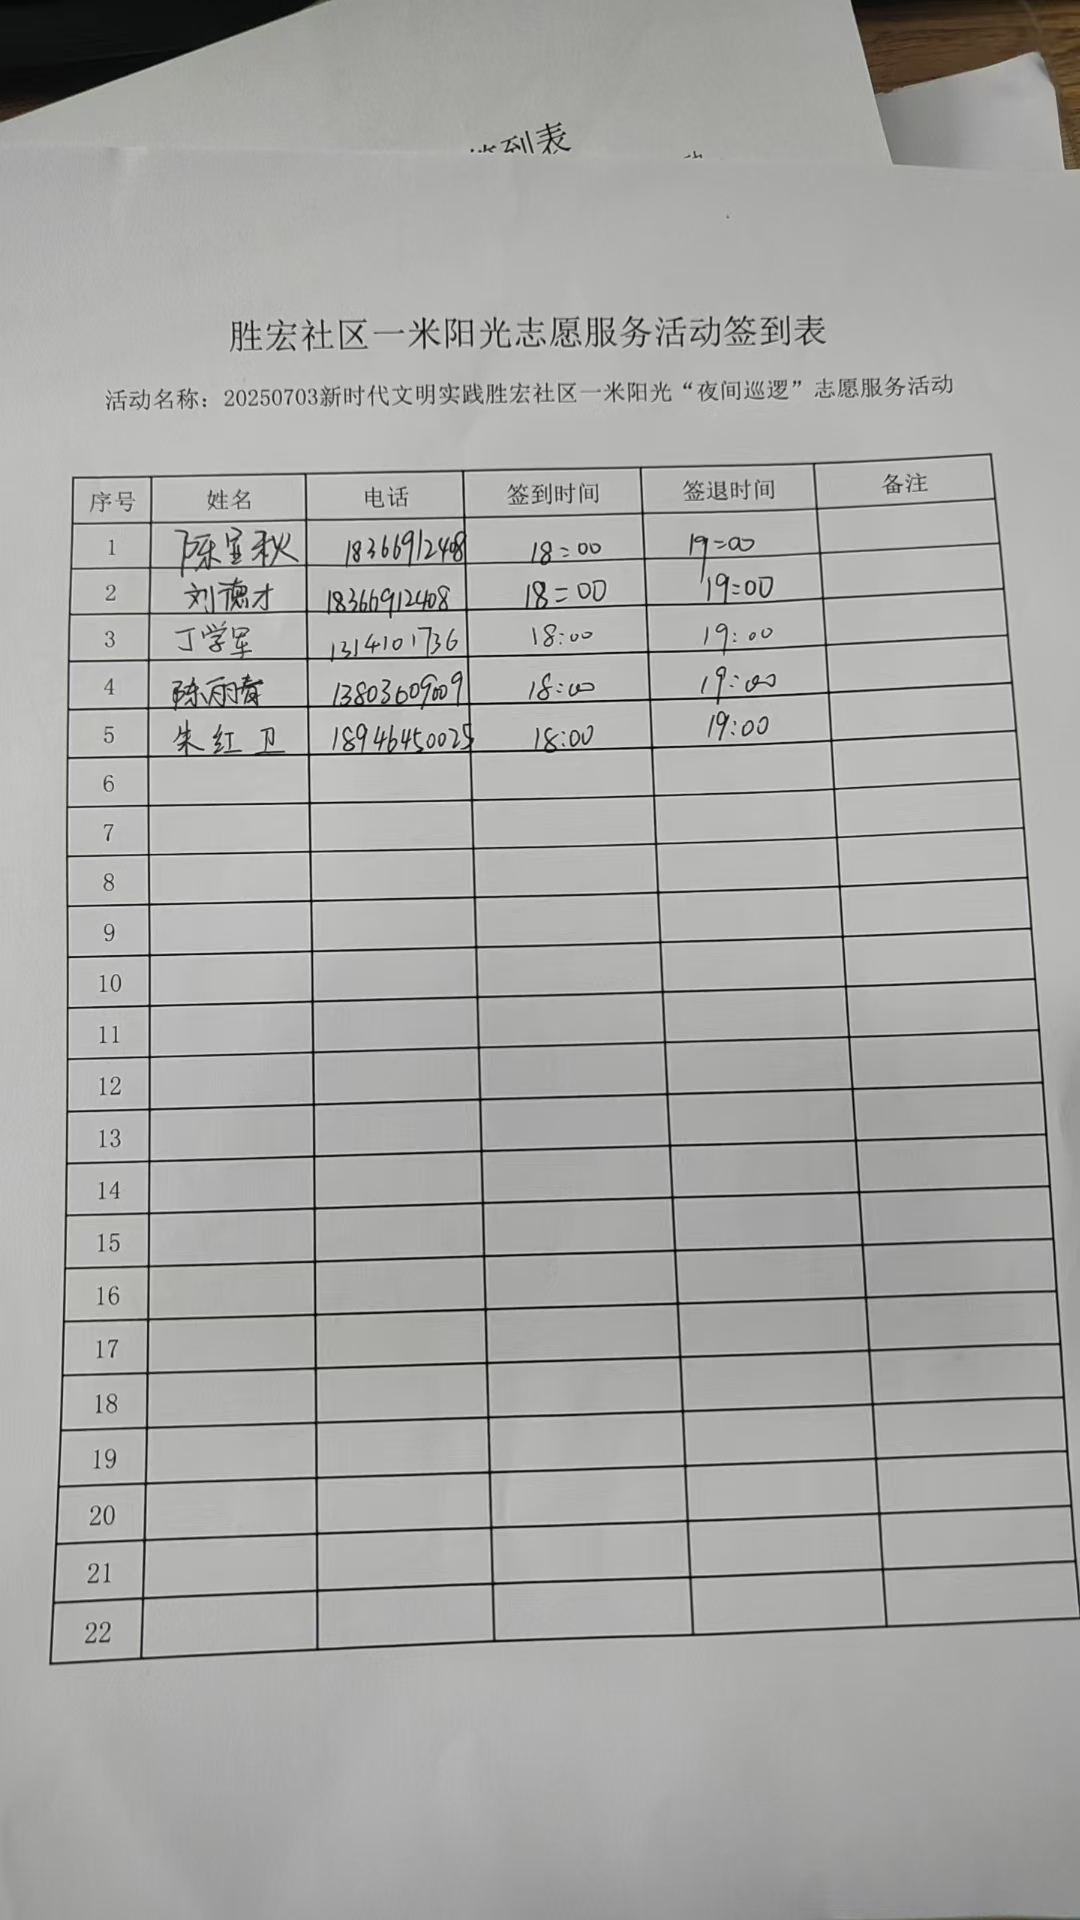 签到表
胜宏社区一米阳光志愿服务活动签到表
活动名称：20250703新时代文明实践胜宏社区一米阳光“夜间巡逻”志愿服务活动
序号 姓名 电话 签到时间 签退时间 备注
1 陈宝秋 18366912408 18:00 19:00
2 刘德才 18366912408 18:00 19:00
3 丁学军 1314101736 18:00 19:00
4 陈雨春 13803609009 18:00 19:00
5 朱红卫 18946450025 18:00 19:00
6
7
8
9
10
11
12
13
14
15
16
17
18
19
20
21
22